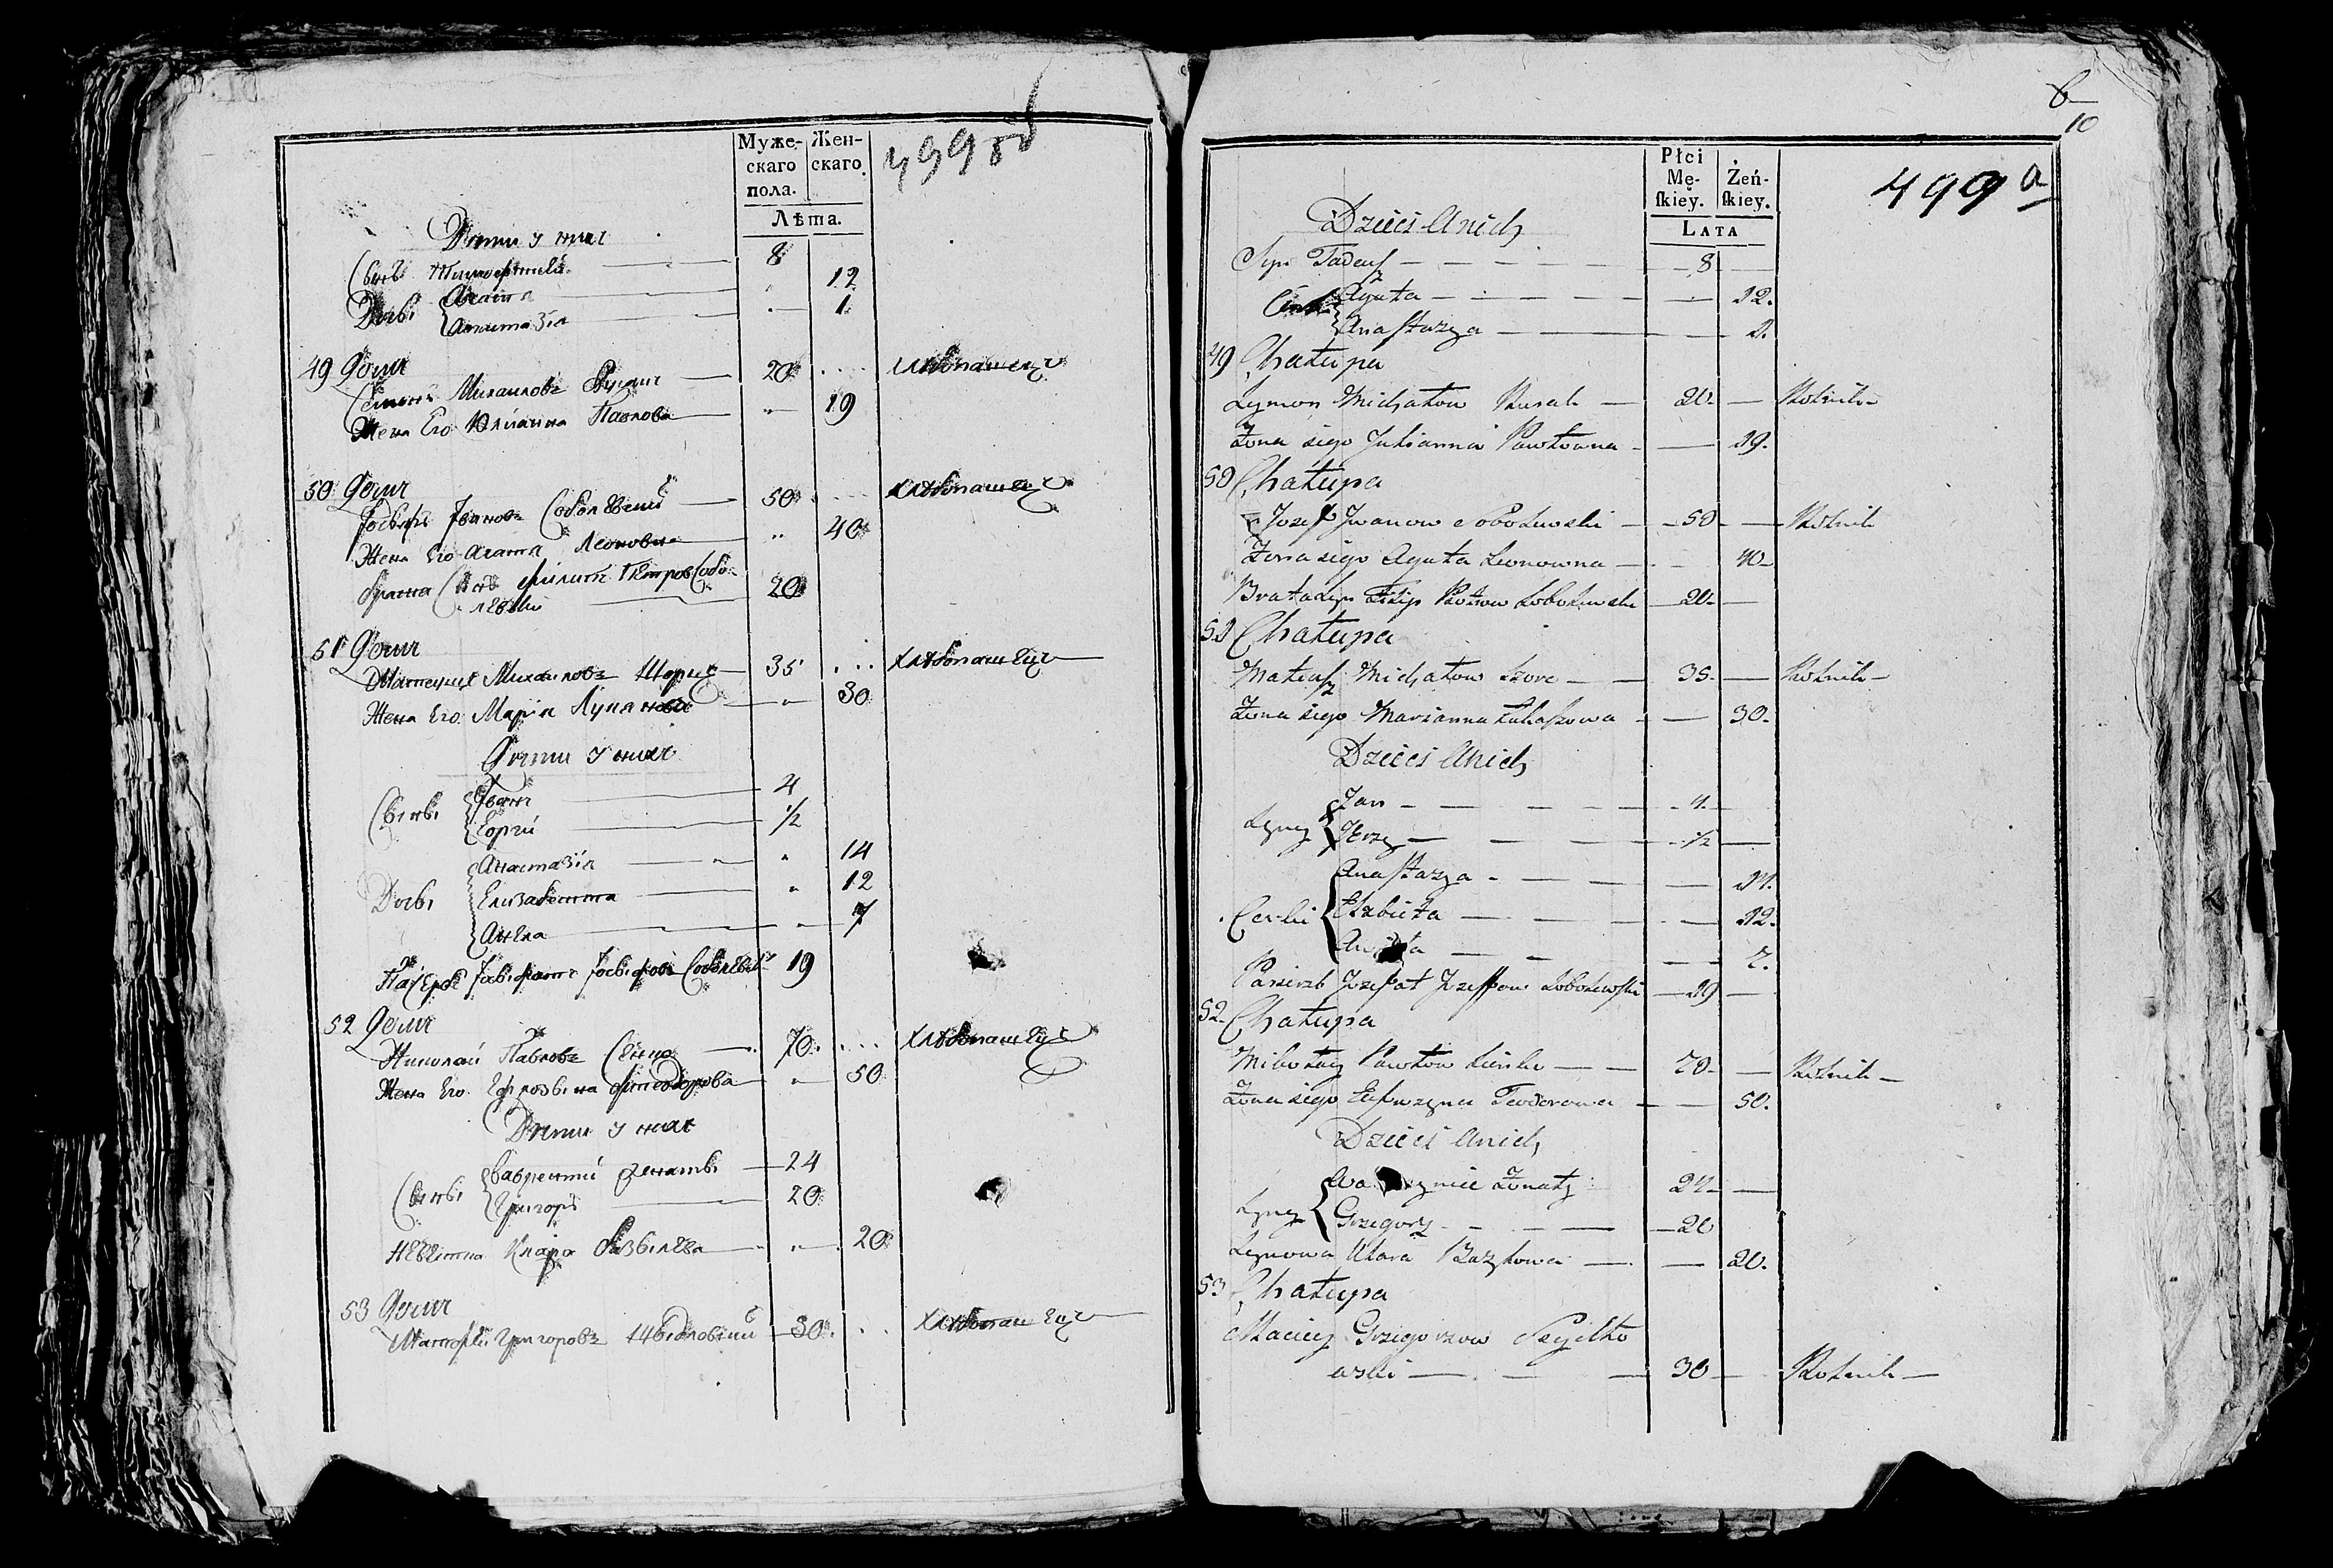 Муже- Жен-
скаго скаго.
пола.
Лѣта.
499 об
Дѣти у них
Сынъ Тимофтей 8
Дочь Агата 12
Анастазія 1
49 Домъ
Семенъ Михаиловъ 20 хлѣбопашецъ
Жена Его Юліанна Павлова 19
50 Домъ
Іосифъ Ивановъ Соболевскій 50 хлѣбопашецъ
Жена Его Агата Леоновна 40
Брата Сынъ Филипъ Петров Собо-
левскій 20
51 Домъ
Матеушъ Михаиловъ Шорцъ 35 хлѣбопашецъ
Жена Его Марія 30
Дѣти у них
Сыны Иванъ 4
Еоргій 1/2
Анастазія 14
Дочь Елизабетта 12
Анела 7
Пасербъ Іосифатъ Іосифовъ Соболевскій 19
52 Домъ
Николай Павловъ Сенько 70 хлѣбопашецъ
Жена Его Ефрозына Фтеодорова 50
Дѣти у них
Сыны Лаврентій женатъ 24
Григорі 20
Невѣстка Клара Базылева 20
53 Домъ
Матфей Григоровъ Шыдловскій 30 хлѣбопашецъ
6
10
Płci
Mę- Żeń-
ſkiey. ſkiey.
LATA
499 a
Dzieci Unich
Syn Tadeusz 8
Corki Agata 12.
Anastazya 1.
49 Chałupa
Szymon Michałow Rusak 20 Rolnik
Żona iego Julianna Pawłowna 19.
50 Chałupa
Jozef Iwanow Sobolewski 50 Rolnik
Żona iego Agata Leonowna 40
Brata Syn Filip Piotrow Sobolewski 20
51 Chałupa
Mateusz Michałow Szorc 35 Rolnik
Żona iego Marianna Łukaszowa 30.
Dzieci Unich
Syny Jan 4.
Jerzy 1/2
Anastazya 14.
Corki Elżbieta 12.
7.
Pasierb Jozefat Jozefow Sobolewski 19
52. Chałupa
Mikołay Pawłow Sieńko 70 Rolnik
Żona iego Eufrozyna Teodorowa 50.
Dzieci Unich
Żonaty 24
Syny Grzegorz 20
Synowa Klara Bazylowa 20.
53 Chałupa
Maciey Grzegorzow Szydło
wski 30 Rolnik